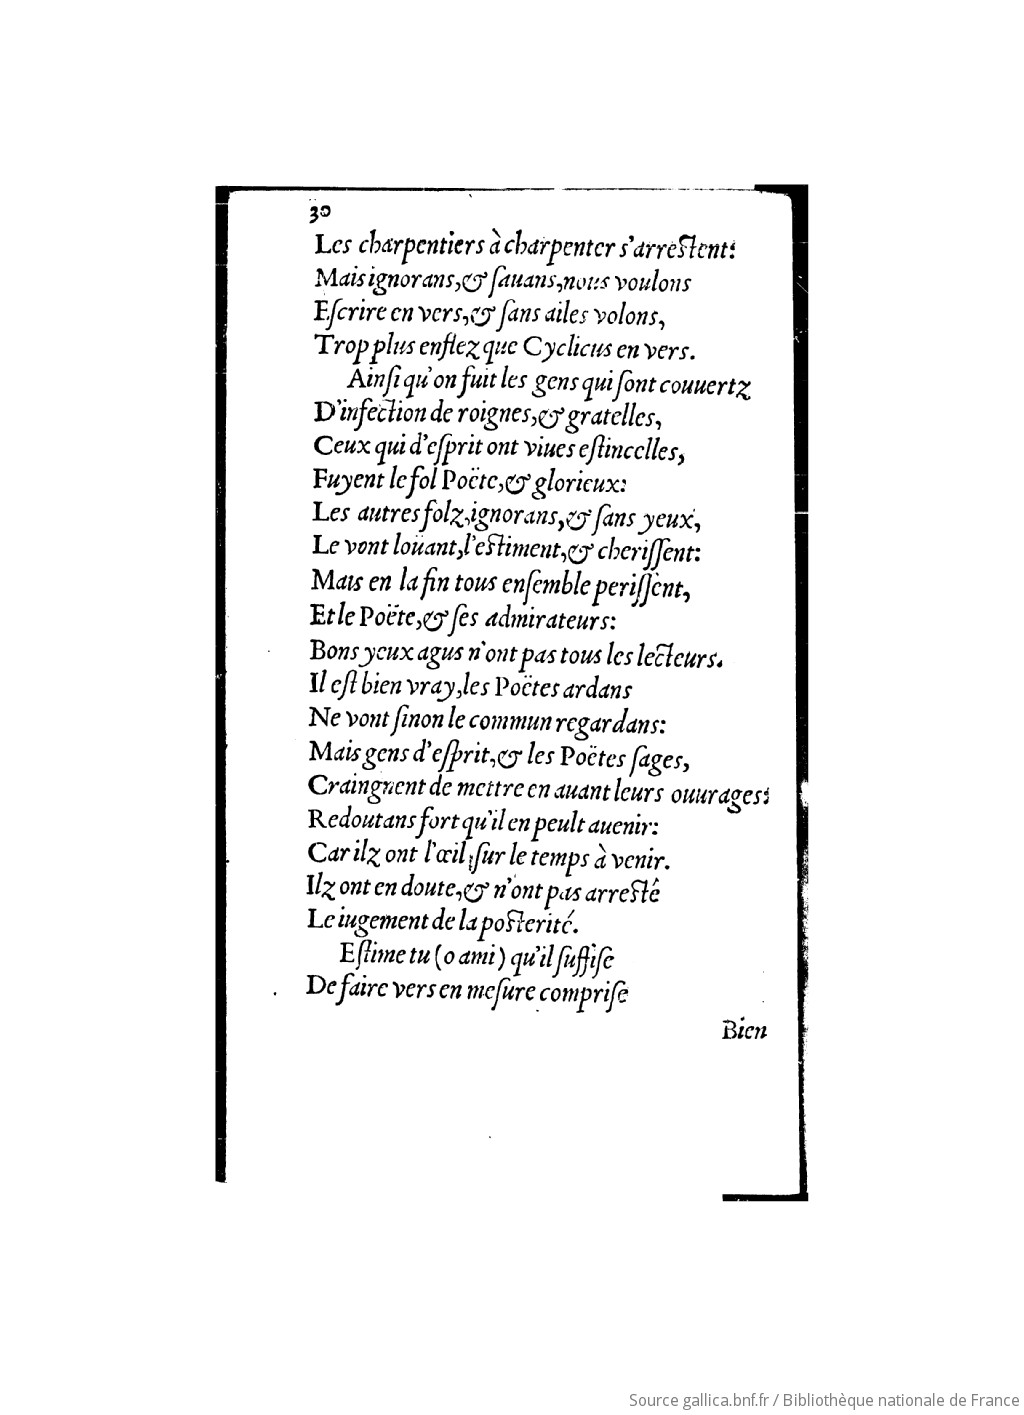 30
Les charpentiers à charpenter s'arrestent:
Mais ignorans, & ſauans, nous voulons
Eſcrire en vers, & ſans ailes volons,
Trop plus enflez que Cyclicus en vers.
Ainſi qu'on fuit les gens qui ſont couuertz
D'infection de roignes, & gratelles,
Ceux qui d'eſprit ont viues eſtincelles,
Fuyent le fol Poëte, & glorieux:
Les autres folz, ignorans, & ſans yeux,
Le vont loüant, l'estiment, & cheriſſent:
Mais en la fin tous enſemble periſſent,
Et le Poëte, & ſes admirateurs:
Bons yeux agus n'ont pas tous les lecteurs.
Il eſt bien vray, les Poëtes ardans
Ne vont ſinon le commun regardans:
Mais gens d'eſprit, & les Poëtes ſages,
Craingnent de mettre en auant leurs ouurages:
Redoutans fort qu'il en peult auenir:
Car ilz ont l'œil ſur le temps à venir.
Ilz ont en doute, & n'ont pas arresté
Le iugement de la posterité.
Eſtime tu (o ami) qu'il ſuffiſe
De faire vers en meſure compriſe
Bien
Source gallica.bnf.fr / Bibliothèque nationale de France